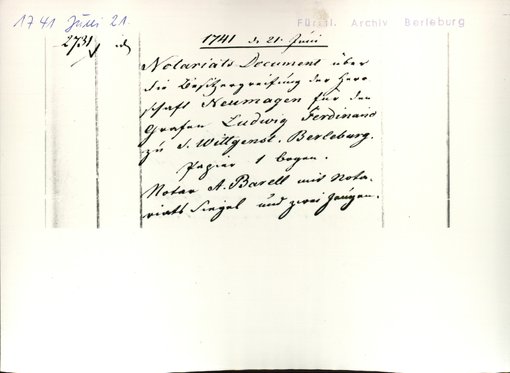 1741 Juni 21.
Fürstl. Archiv Berleburg
2731 id
1741 d. 21. Juni
Notariats Document über
die Besitzergreifung der Herr
schaft Neumagen für den
Grafen Ludwig Ferdinand
zu S. Wittgenst. Berleburg.
Papier 1 bogen.
Notar A. Barell mit Nota-
riats Siegel und zwei Zeugen.